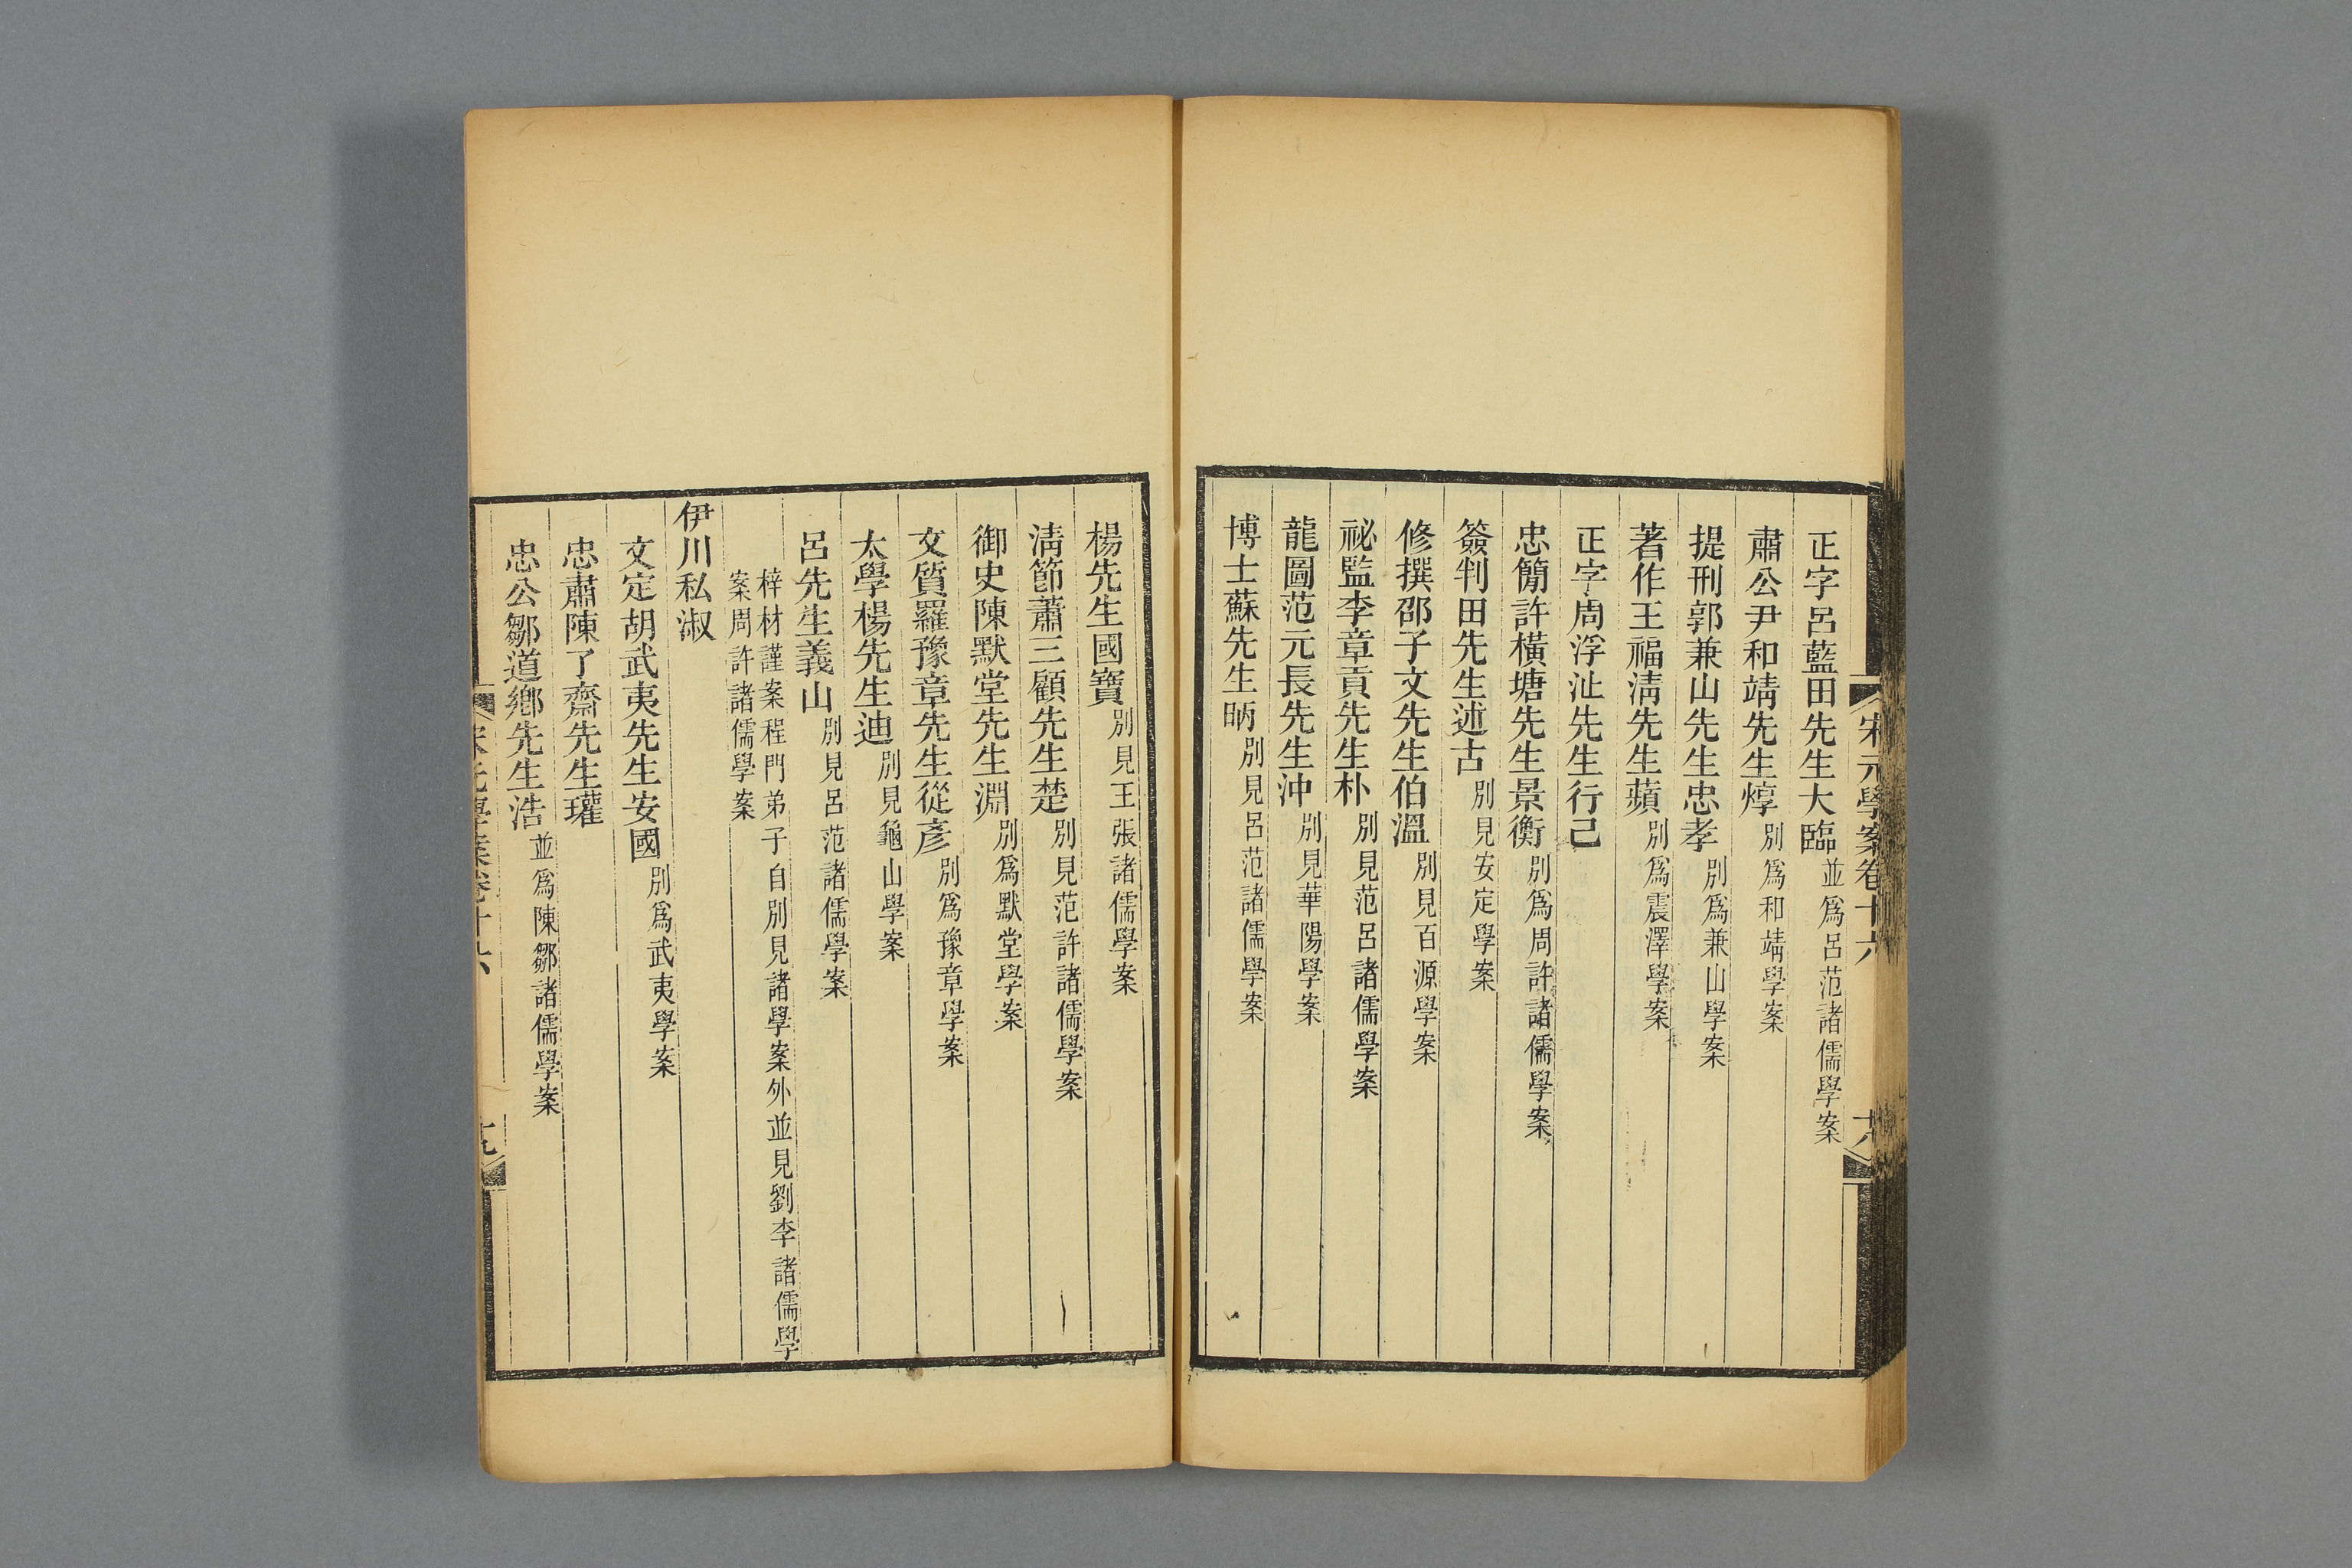 宋元學案卷十六
十八
正字呂藍田先生大臨並爲呂范諸儒學案
肅公尹和靖先生焞別爲和靖學案
提刑郭兼山先生忠孝別爲兼山學案
著作王福淸先生蘋別爲震澤學案
正字周浮沚先生行己
忠簡許橫塘先生景衡別爲周許諸儒學案
簽判田先生述古別見安定學案
修撰邵子文先生伯溫別見百源學案
祕監李章貢先生朴別見范呂諸儒學案
龍圖范元長先生沖別見華陽學案
博士蘇先生昞別見呂范諸儒學案
楊先生國寶別見王張諸儒學案
淸節蕭三顧先生楚別見范許諸儒學案
御史陳默堂先生淵別爲默堂學案
文質羅豫章先生從彥別爲豫章學案
太學楊先生迪別見龜山學案
呂先生義山別見呂范諸儒學案
梓材謹案程門弟子自別見諸學案外並見劉李諸儒學
案周許諸儒學案
伊川私淑
文定胡武夷先生安國別爲武夷學案
忠肅陳了齋先生瓘
忠公鄒道鄉先生浩並爲陳鄒諸儒學案
宋元學案卷十六